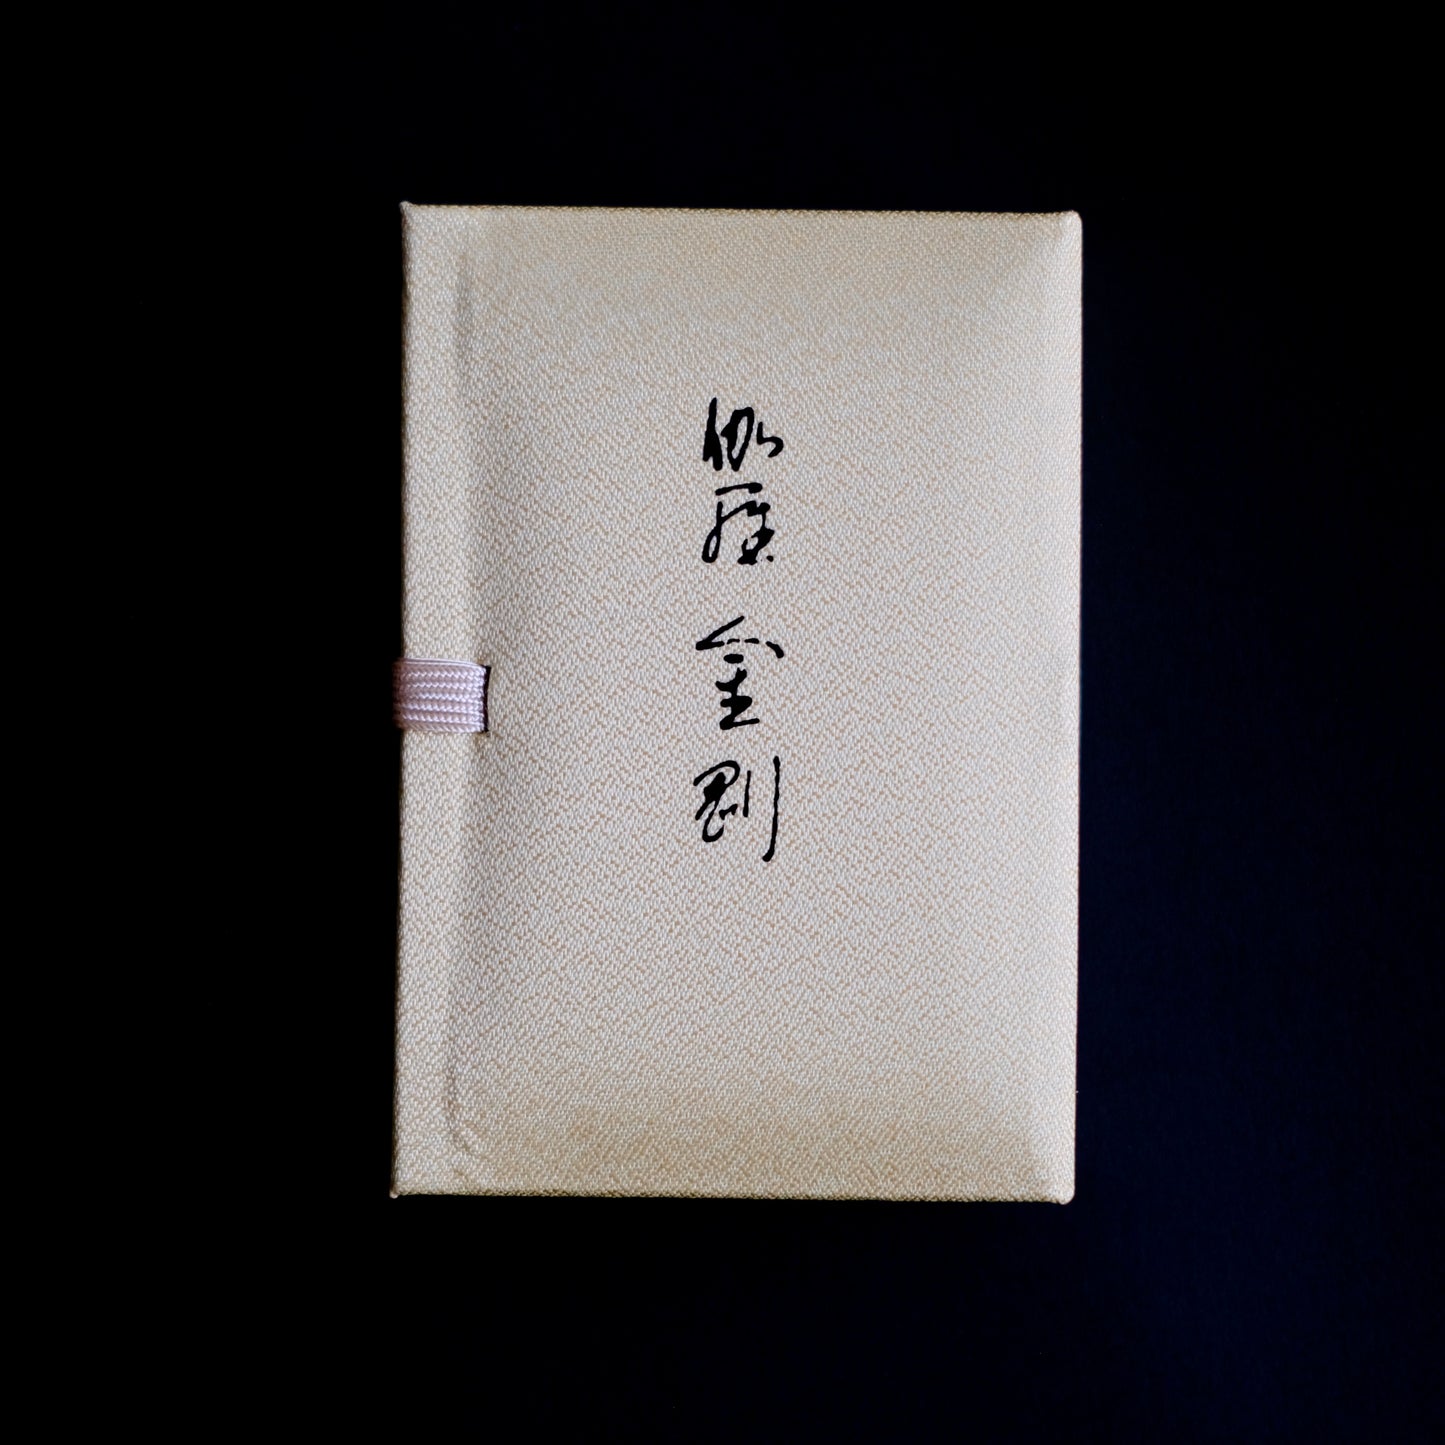 伽羅 金剛